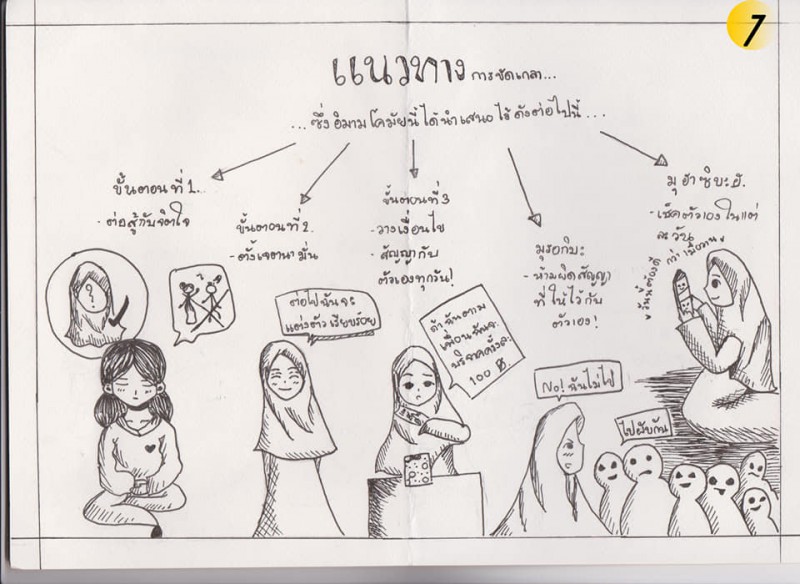 7
แนวทาง การขัดเกลา...
...ซึ่ง อิมามโคมัยนี้ ได้นำเสนอ ไว้ ดังต่อไปนี้...
ขั้นตอนที่ 1.
- ต่อสู้กับจิตใจ
ขั้นตอนที่ 2.
- ตั้งเจตนามั่น
ขั้นตอนที่ 3
- วางเงื่อนไข
- สัญญากับ
ตัวเองทุกวัน!
มุรอกิบะ
- ห้ามผิดสัญญา
ที่ให้ไว้กับ
ตัวเอง!
มุฮาซิบะฮ์.
- เช็คตัวเองในแต่
ละวัน
วันนี้ต้องดี กว่า เมื่อวาน
ต่อไปฉันจะ
แต่งตัวเรียบร้อย
ถ้าฉันตาม
เพื่อนฉันจะ
บริจาคครั้งละ
100 ฿.
No! ฉันไม่ไป
ไปผับกัน